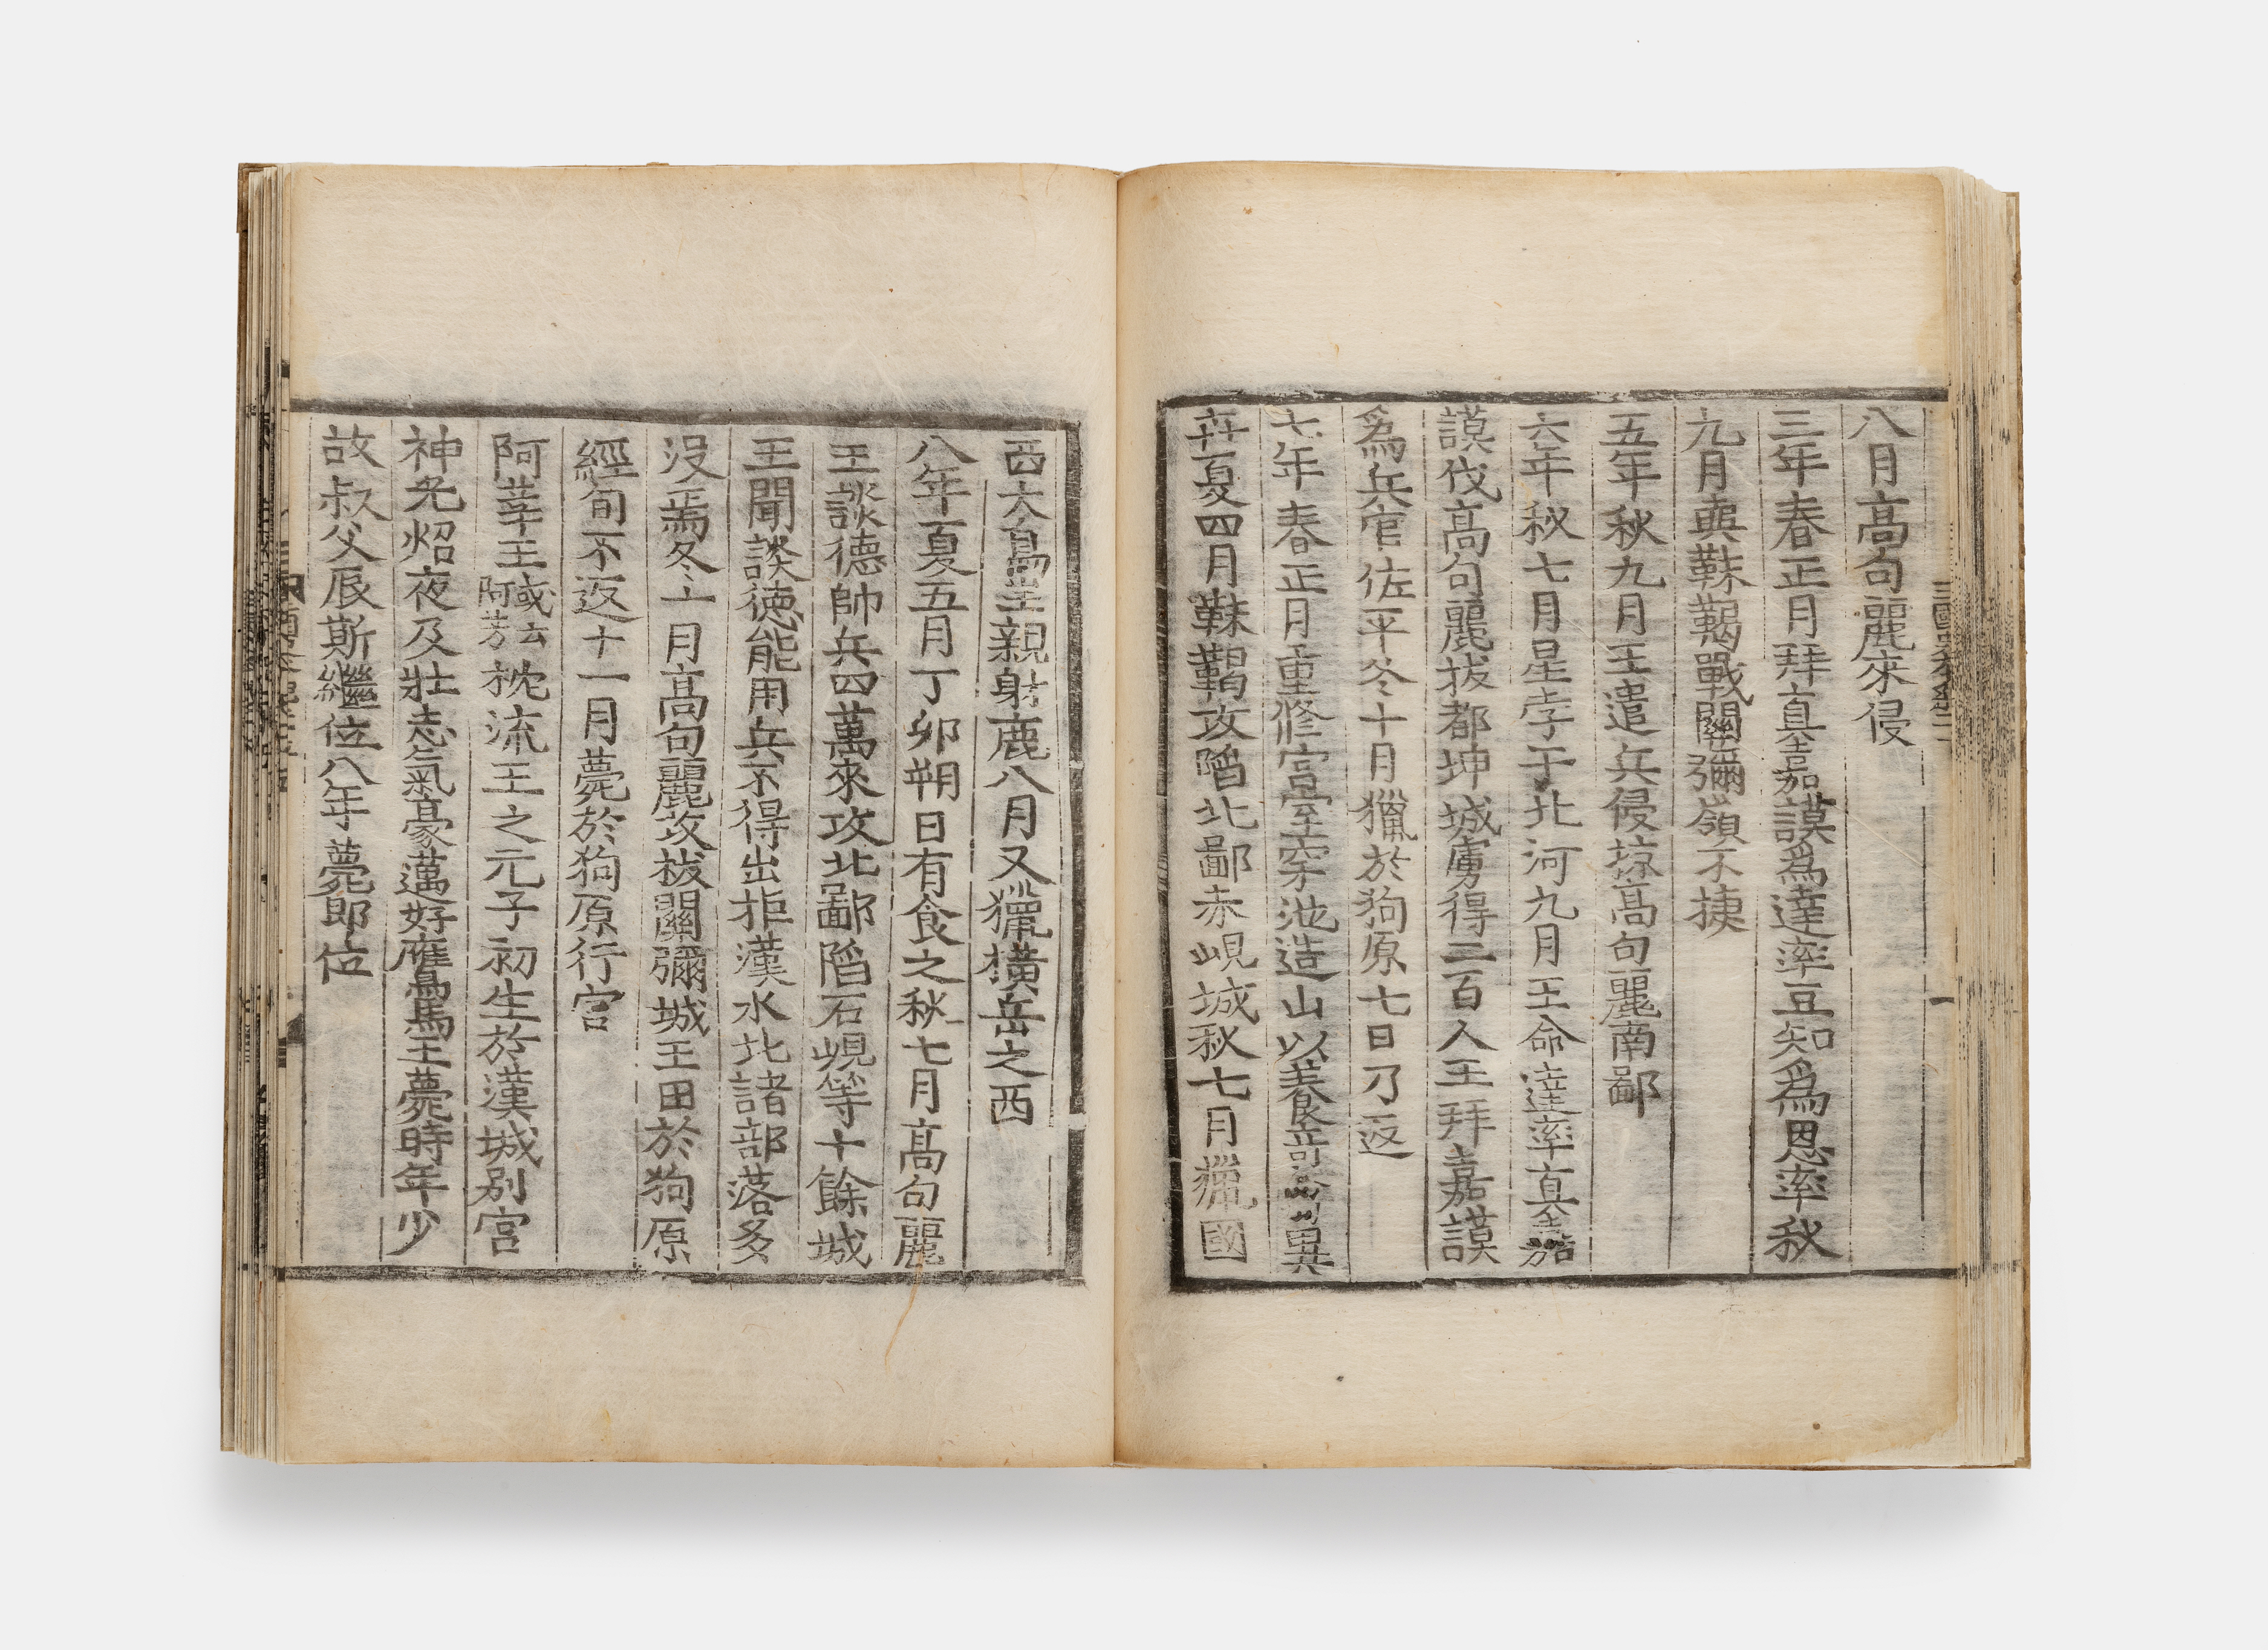 八月高句麗來侵
三年春正月拜真嘉謨爲達率豆知爲恩率秋
九月與靺鞨戰關彌嶺不捷
五年秋九月王遣兵侵掠高句麗南鄙
六年秋七月星孛于北河九月王命達率真嘉
謨伐高句麗拔都坤城虜得二百人王拜嘉謨
爲兵官佐平冬十月獵於狗原七日乃返
七年春正月重修宮室穿池造山以養奇異
卉夏四月靺鞨攻陷北鄙赤峴城秋七月獵國
西大島王親射鹿八月又獵橫岳之西
八年夏五月丁卯朔日有食之秋七月高句麗
王談德帥兵四萬來攻北鄙陷石峴等十餘城
王聞談德能用兵不得出拒漢水北諸部落多
沒焉冬十月高句麗攻拔關彌城王田於狗原
經旬不返十一月薨於狗原行宮
阿莘王或云阿芳枕流王之元子初生於漢城別宮
神光炤夜及壯志氣豪邁好鷹馬王薨時年少
故叔父辰斯繼位八年薨即位